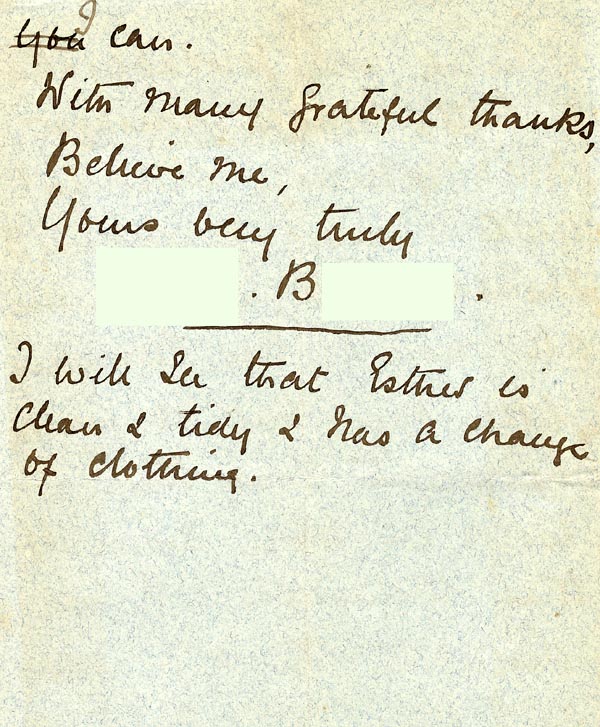 I
you can.
With many grateful thanks,
Believe me,
Yours very truly
. B .
I will see that Esther is
clean & tidy & has a change
of clothing.